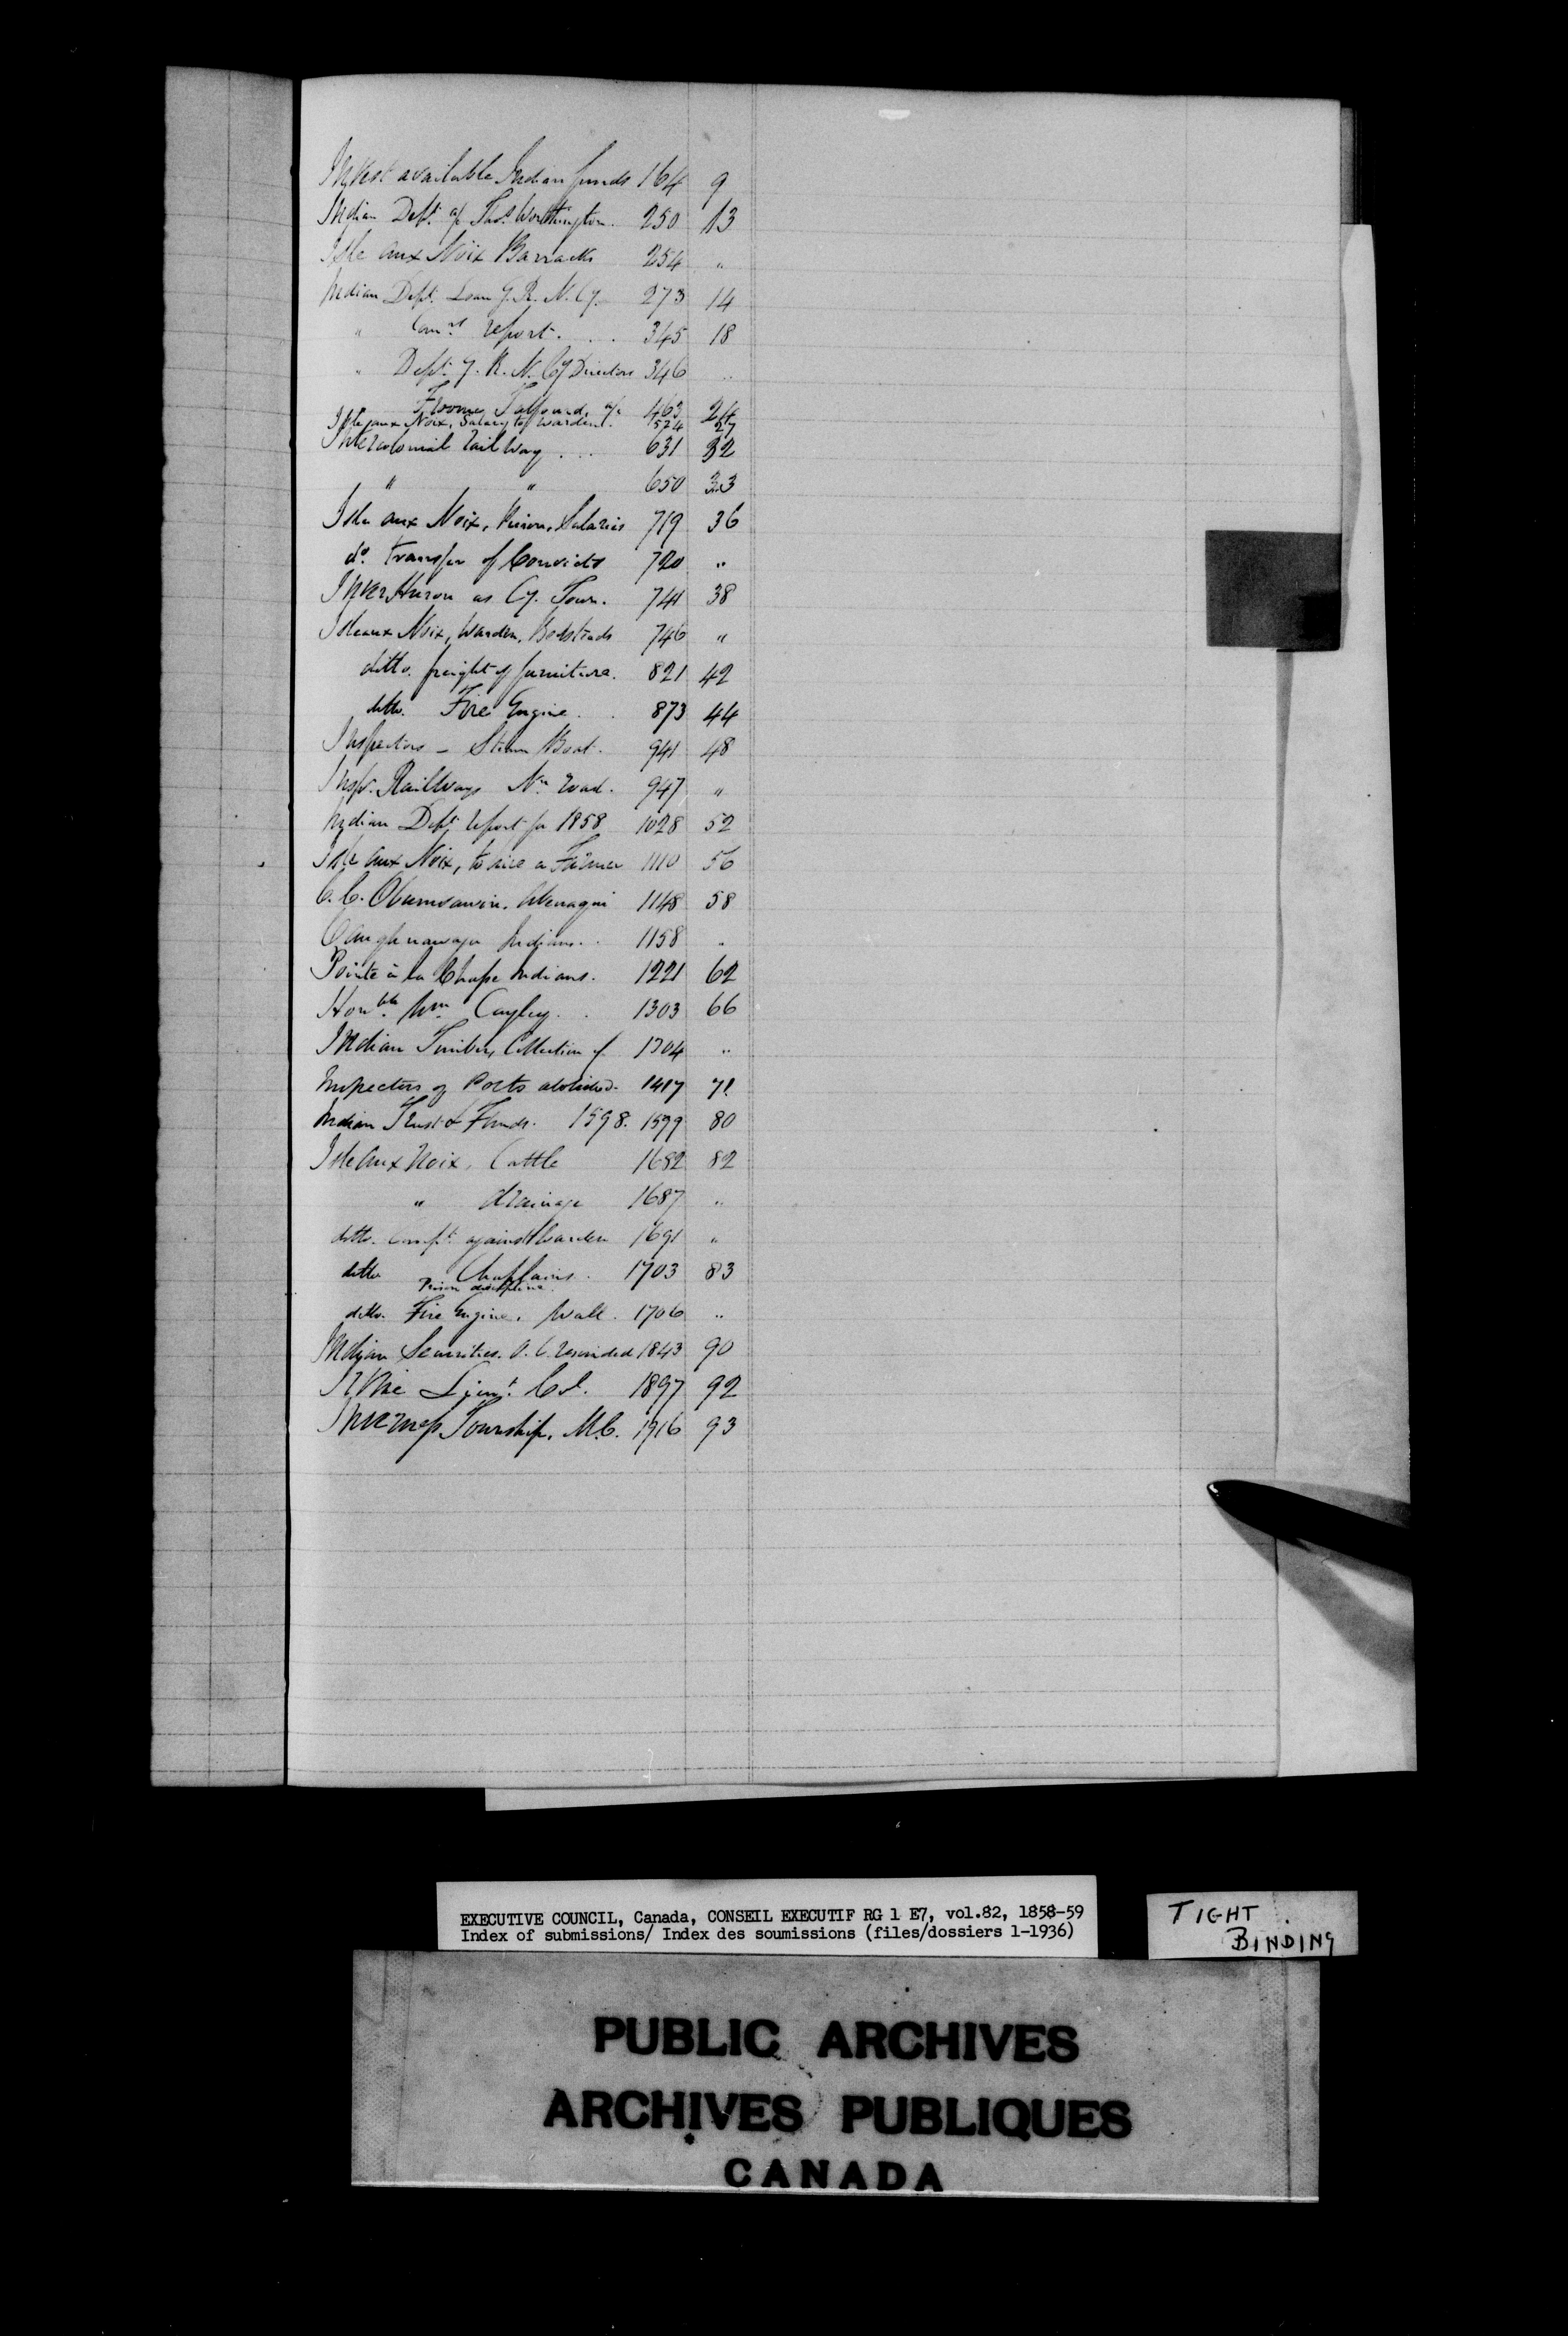 Invest available Indian funds 164 9
Indian Dept. a/c Thos. Worthington. 250 13
Isle aux Noix Barracks 254 "
Indian Dept. Loan G. R. N. Cy. 273 14
" Comrs. report. . . . 345 18
" Dept. G. R. N. Cy Directors 346 "
Froome Talfourd, a/c 463 24
Isle aux Noix, Salary to Warden. 574 27
Intercolonial Railway . . . 631 32
" " 650 33
Isle aux Noix, Prison, Salaries 719 36
do. transfer of Convicts 720 "
Inverhuron as Cy. Town. 741 38
Isle aux Noix, Warden, Bedsteads 746 "
ditto. freight of furniture. 821 42
ditto. Fire Engine . . 873 44
Inspectors – Steam Boat. 941 48
Inspr. Railways Nn. road. 947 "
Indian Dept. report for 1858 1028 52
Isle aux Noix, to hire a Farmer 1110 56
C. C. Obumsawin. Abenaqui 1148 58
Caughnawaga Indians. . 1158 "
Pointe à la Chasse Indians. 1221 62
Honble. Wm. Cayley. . 1303 66
Indian Timber, Collection of 1304 "
Inspectors of Ports abolished. 1417 71.
Indian Trust & Funds. 1598. 1599 80
Isle aux Noix, Cattle 1682 82
" drainage 1687 "
ditto. Compt. against Warden 1691 "
ditto Chaplains. 1703 83
Prison discipline.
ditto. Fire Engine, Wall. 1706 "
Indian Securities. O. C. rescinded 1843 90
Irvine Lieut. Col. 1897 92
Inverness Township, M.C. 1916 93
EXECUTIVE COUNCIL, Canada, CONSEIL EXECUTIF RG 1 E7, vol.82, 1858-59
Index of submissions/ Index des soumissions (files/dossiers 1-1936)
TIGHT
BINDING
PUBLIC ARCHIVES
ARCHIVES PUBLIQUES
CANADA